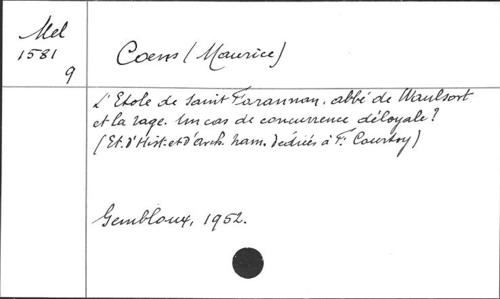 Mel
1581
9
Coens (Maurice)
L'Etole de Saint Forannan, abbé de Waulsort
et la rage. Un cas de concurrence déloyale?
(Et. d'Hist. et d'arch. nam. dédiées à F. Courtoy)
Gembloux, 1952.